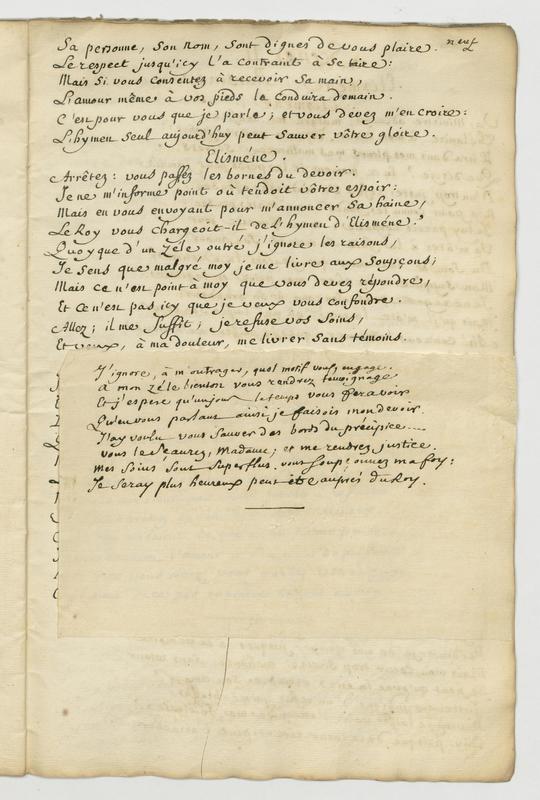 neuf
Sa personne, son nom, sont dignes de vous plaire.
Le respect jusqu'icy l'a contraint à se taire:
Mais si vous consentez à recevoir sa main,
L'amour même à vos pieds le conduira demain.
C'est pour vous que je parle; et vous devez m'en croire:
L'hymen seul aujourd'huy peut sauver vôtre gloire.
Elisméne.
Arrêtez: vous passez les bornes du devoir.
Je ne m'informe point où tendoit vôtre espoir:
Mais en vous envoyant pour m'annoncer sa haine,
Le Roy vous chargeoit-il de L'hymen d'Elisméne?
Quoyque d'un zele outré j'ignore les raisons,
Je sens que malgré moy je me livre aux soupçons;
Mais ce n'est point à moy que vous devez répondre,
Et ce n'est pas icy que je veux vous confondre.
Allez; il me suffit; je refuse vos soins,
Et veux, à ma douleur, me livrer sans témoins.
J'ignore, à m'outrager, quel motif vous engage.
A mon zéle bientôt vous rendrez temoignage
Et j'espere qu'un jour le temps vous fera voir
Qu'en vous parlant ainsi je faisois mon devoir.
J'ay voulu vous sauver des bords du précipice....
vous le sçaurez, Madame; et me rendrez justice.
Mes soins sont superflus. vous soupçonnez ma foy:
Je seray plus heureux peut être auprés du Roy.